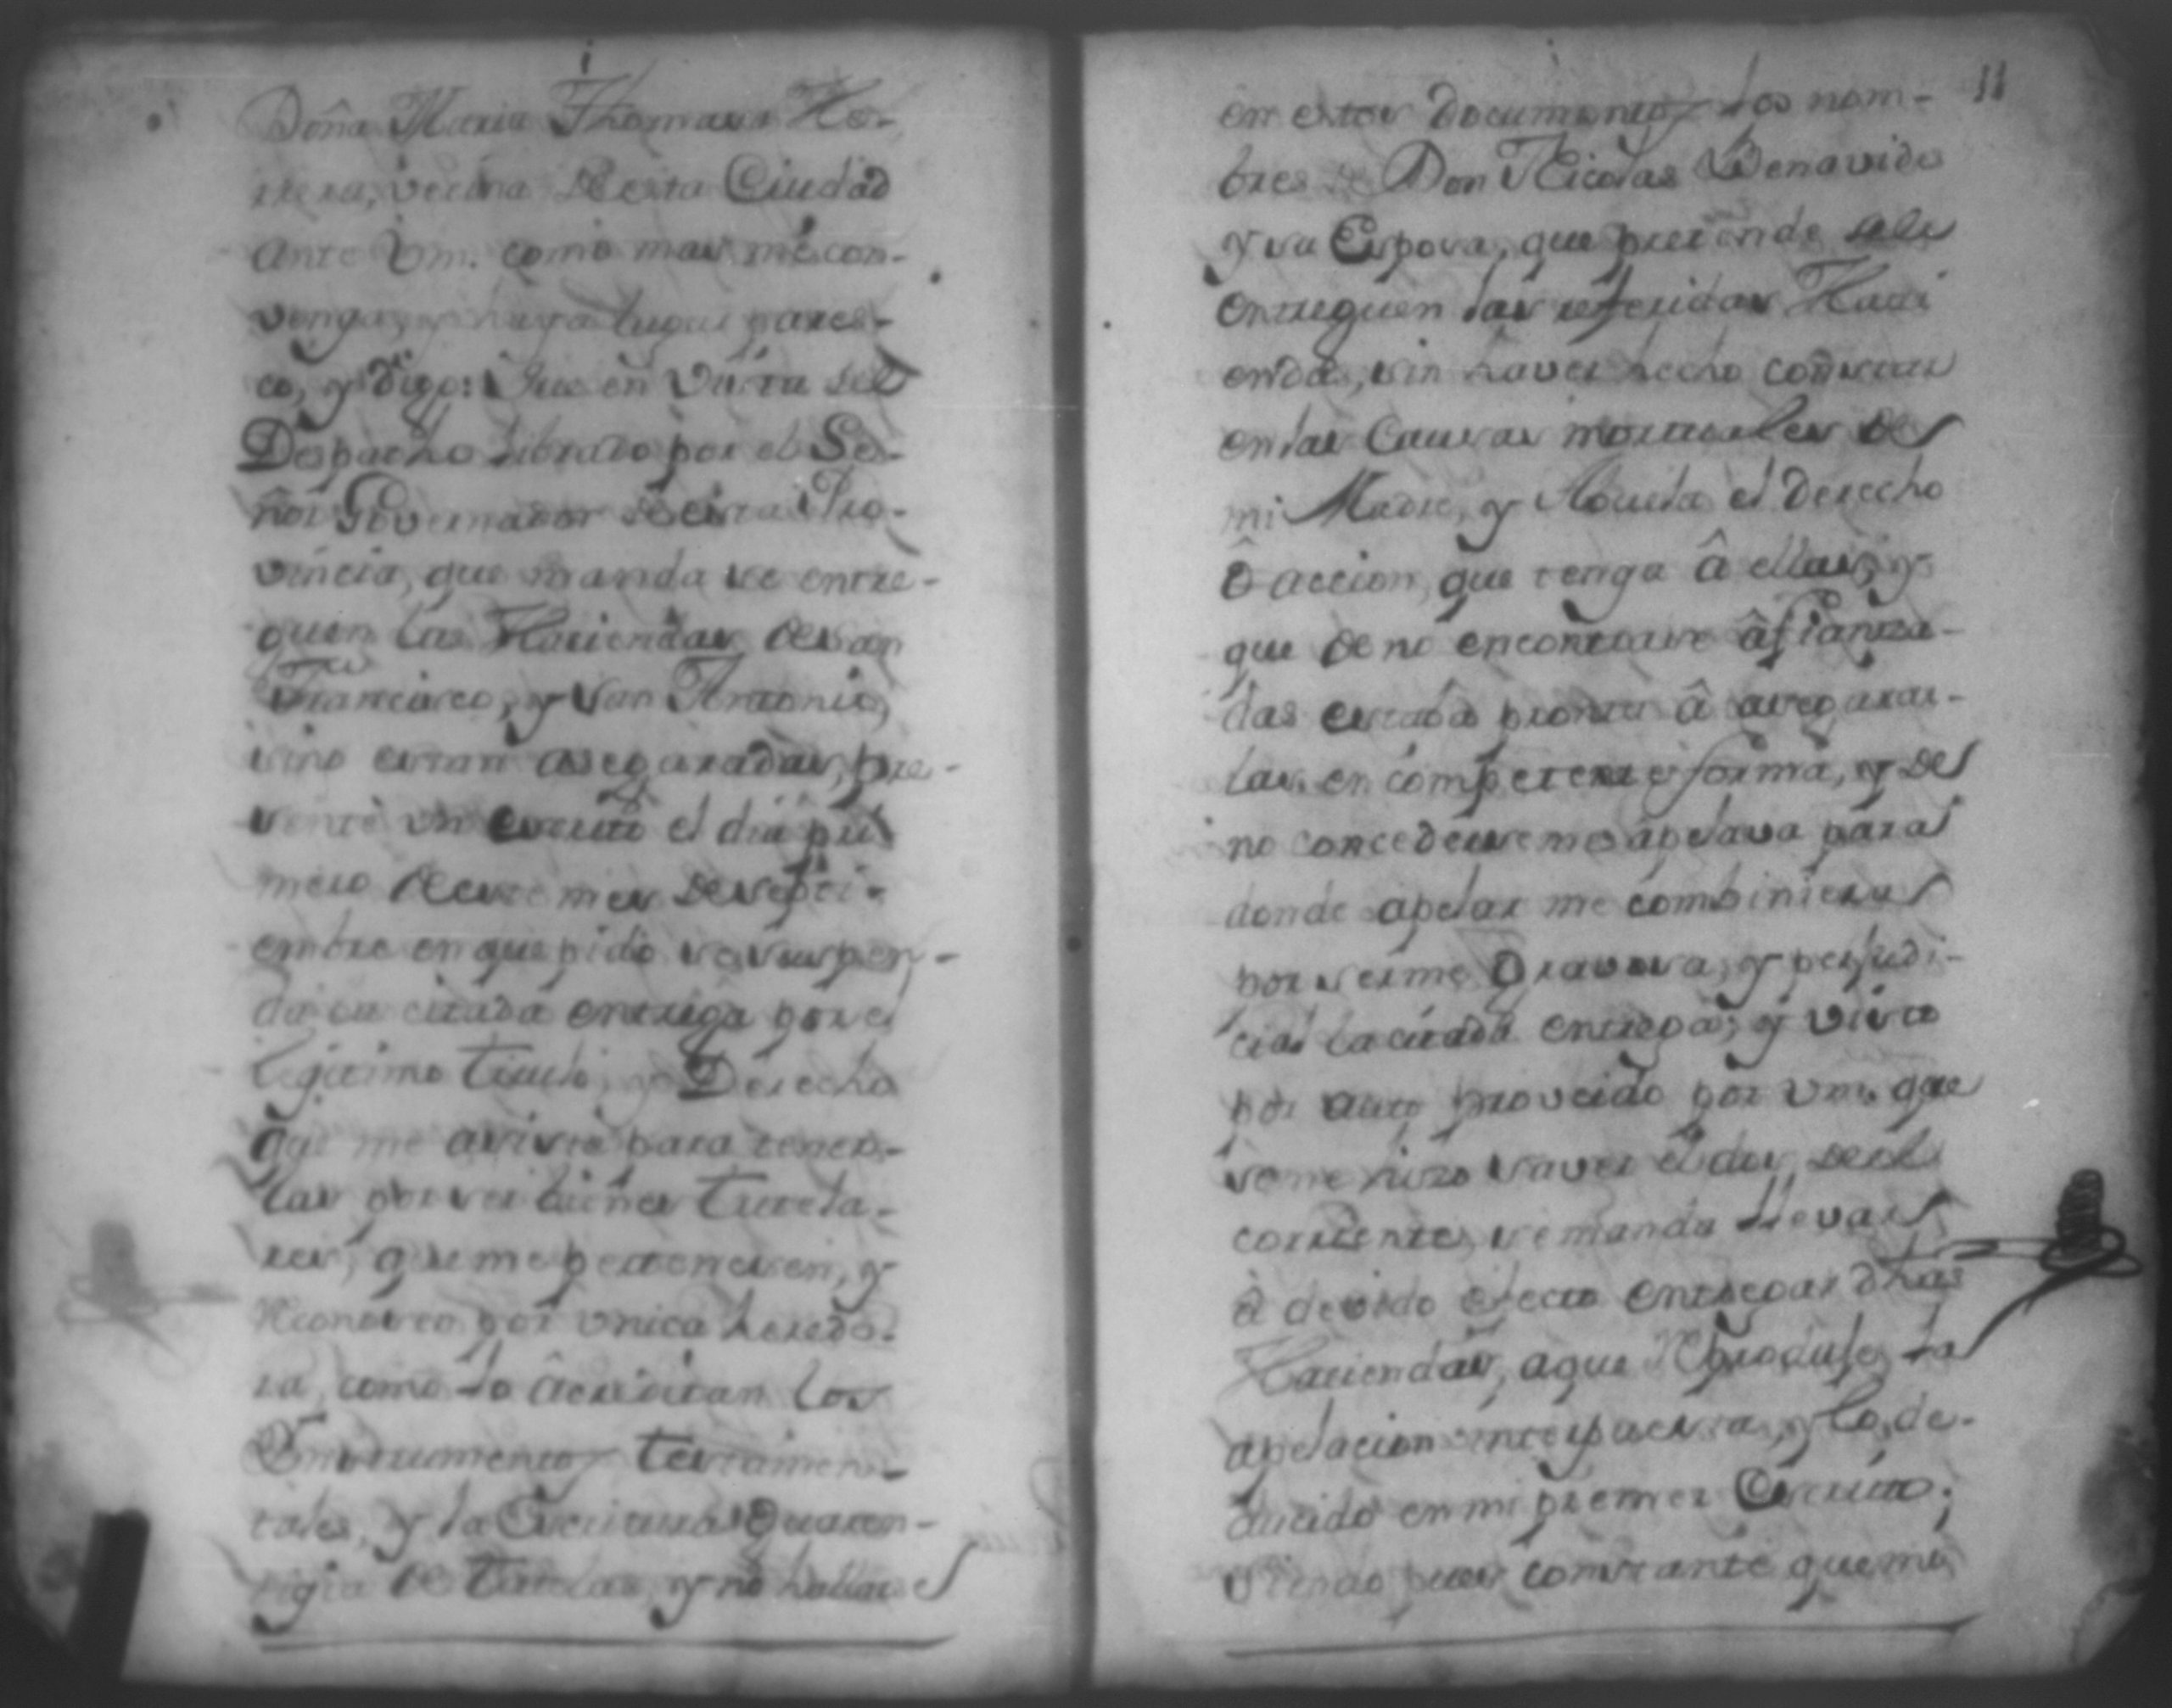 Doña Maria Thomasa He-
rrera, vecina de esta Ciudad
ante Vm. como mas me con-
venga, y haya lugar pares-
co, y digo: Que en Vista del
Despacho librado por el Se-
ñor Governador de esta Pro-
vincia, que manda se entre-
guen las Haciendas de san
Francisco, y San Antonio,
sino estan aseguradas, pre-
senté un escrito el dia pri
mero de este mes de septi-
embre en que pido se suspen-
da la citada entrega por el
legitimo titulo, y Derecho
que me asiste para tener-
las por ser bienes tutela-
res, que me pertenesen, y
Reconosco por unica herede-
ra, como lo âcreditan los
Ynstrumentos testamen-
tales, y la Escritura Guaren-
tigia de tutelas, y no hallarse
11
en estos Documentos los nom-
bres de Don Nicolas Benavides
y su Esposa, que pretende sele
entreguen las referidas Haci
endas, sin haver hecho constar
en las Causas mortuales de
mi Madre, y Abuela el derecho
ô accion, que tenga â ellas; y
que de no encontrarse âfianza-
das estaba pronta â asegurar-
las en competente forma, y de
no concederseme apelava para
donde apelar me combiniera
por serme Gravosa, y perjudi-
cial la citada entrega; y visto
por auto proveido por Vm. que
se me hizo saver el dia seis del
corriente, se manda llevar
â devido efecto entregar dhas
Haciendas, a que Reproduse la
apelacion interpuesta, y lo de-
ducido en mi primer Escrito;
Siendo pues constante que mi